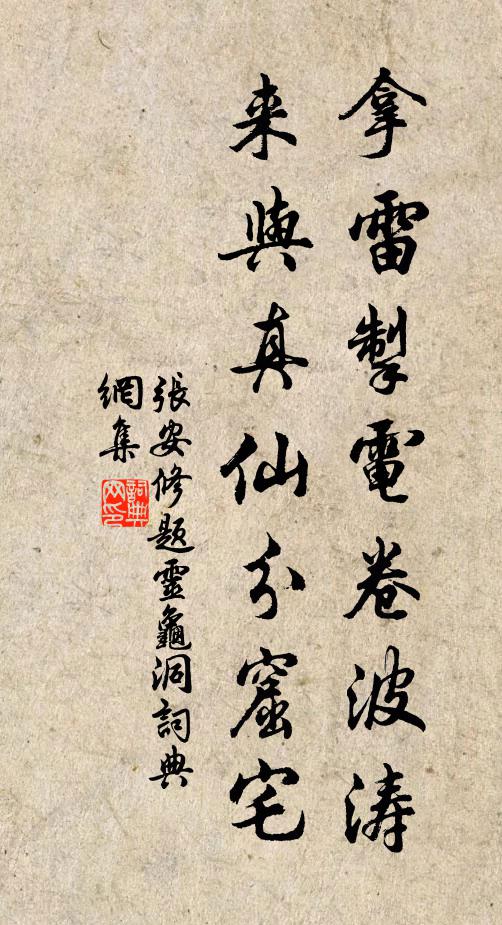 拿雷掣電卷波涛
来與真仙分窟宅
張安修题靈龜洞詞典
網集
詞典网印